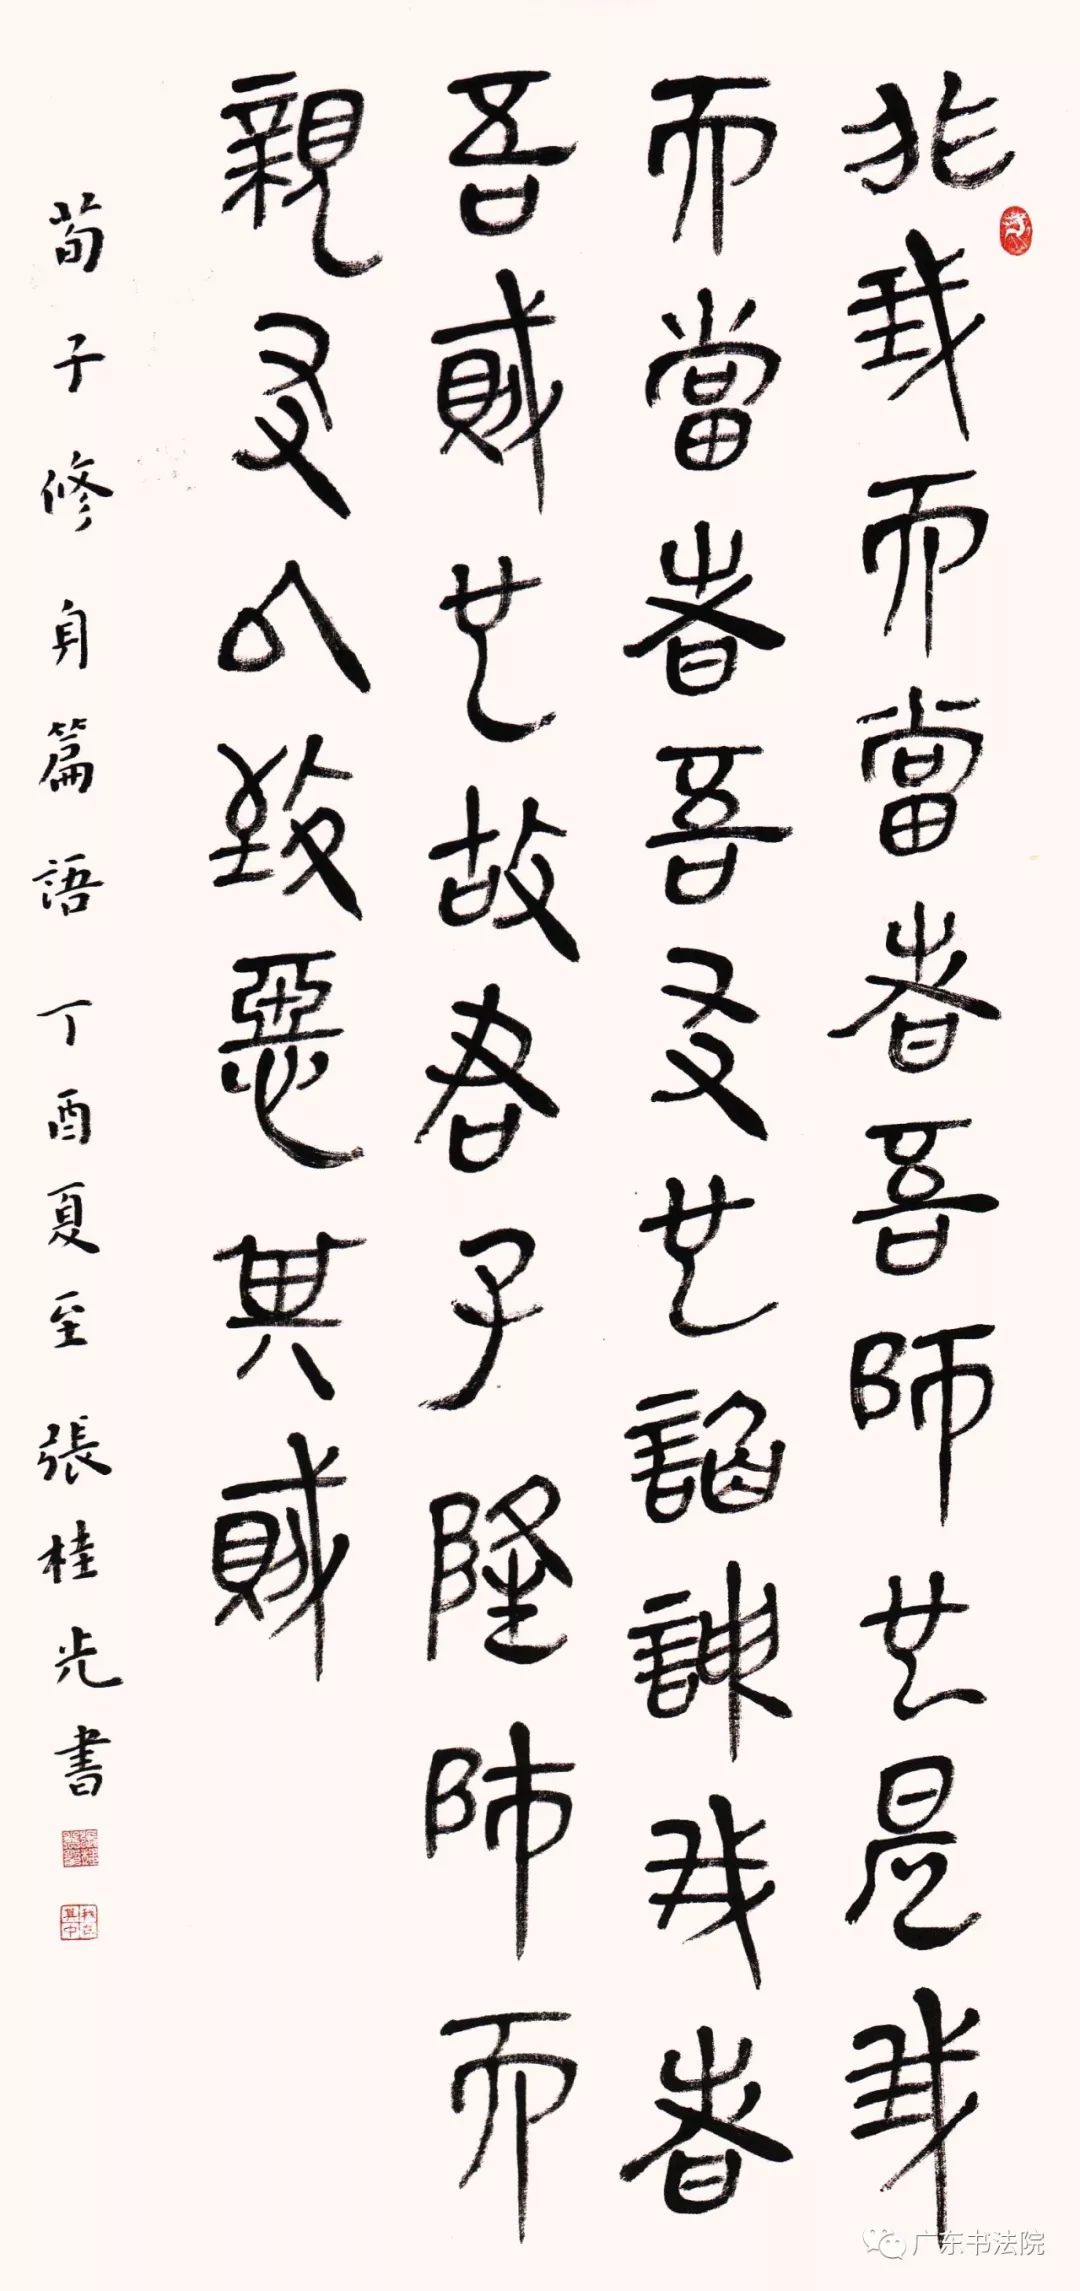 非我而當者吾師也是我
而當者吾友也諂諛我者
吾賊也故君子隆師而
親友以致惡其賊
荀子修身篇語丁酉夏至張桂光書
我在其中
广东书法院